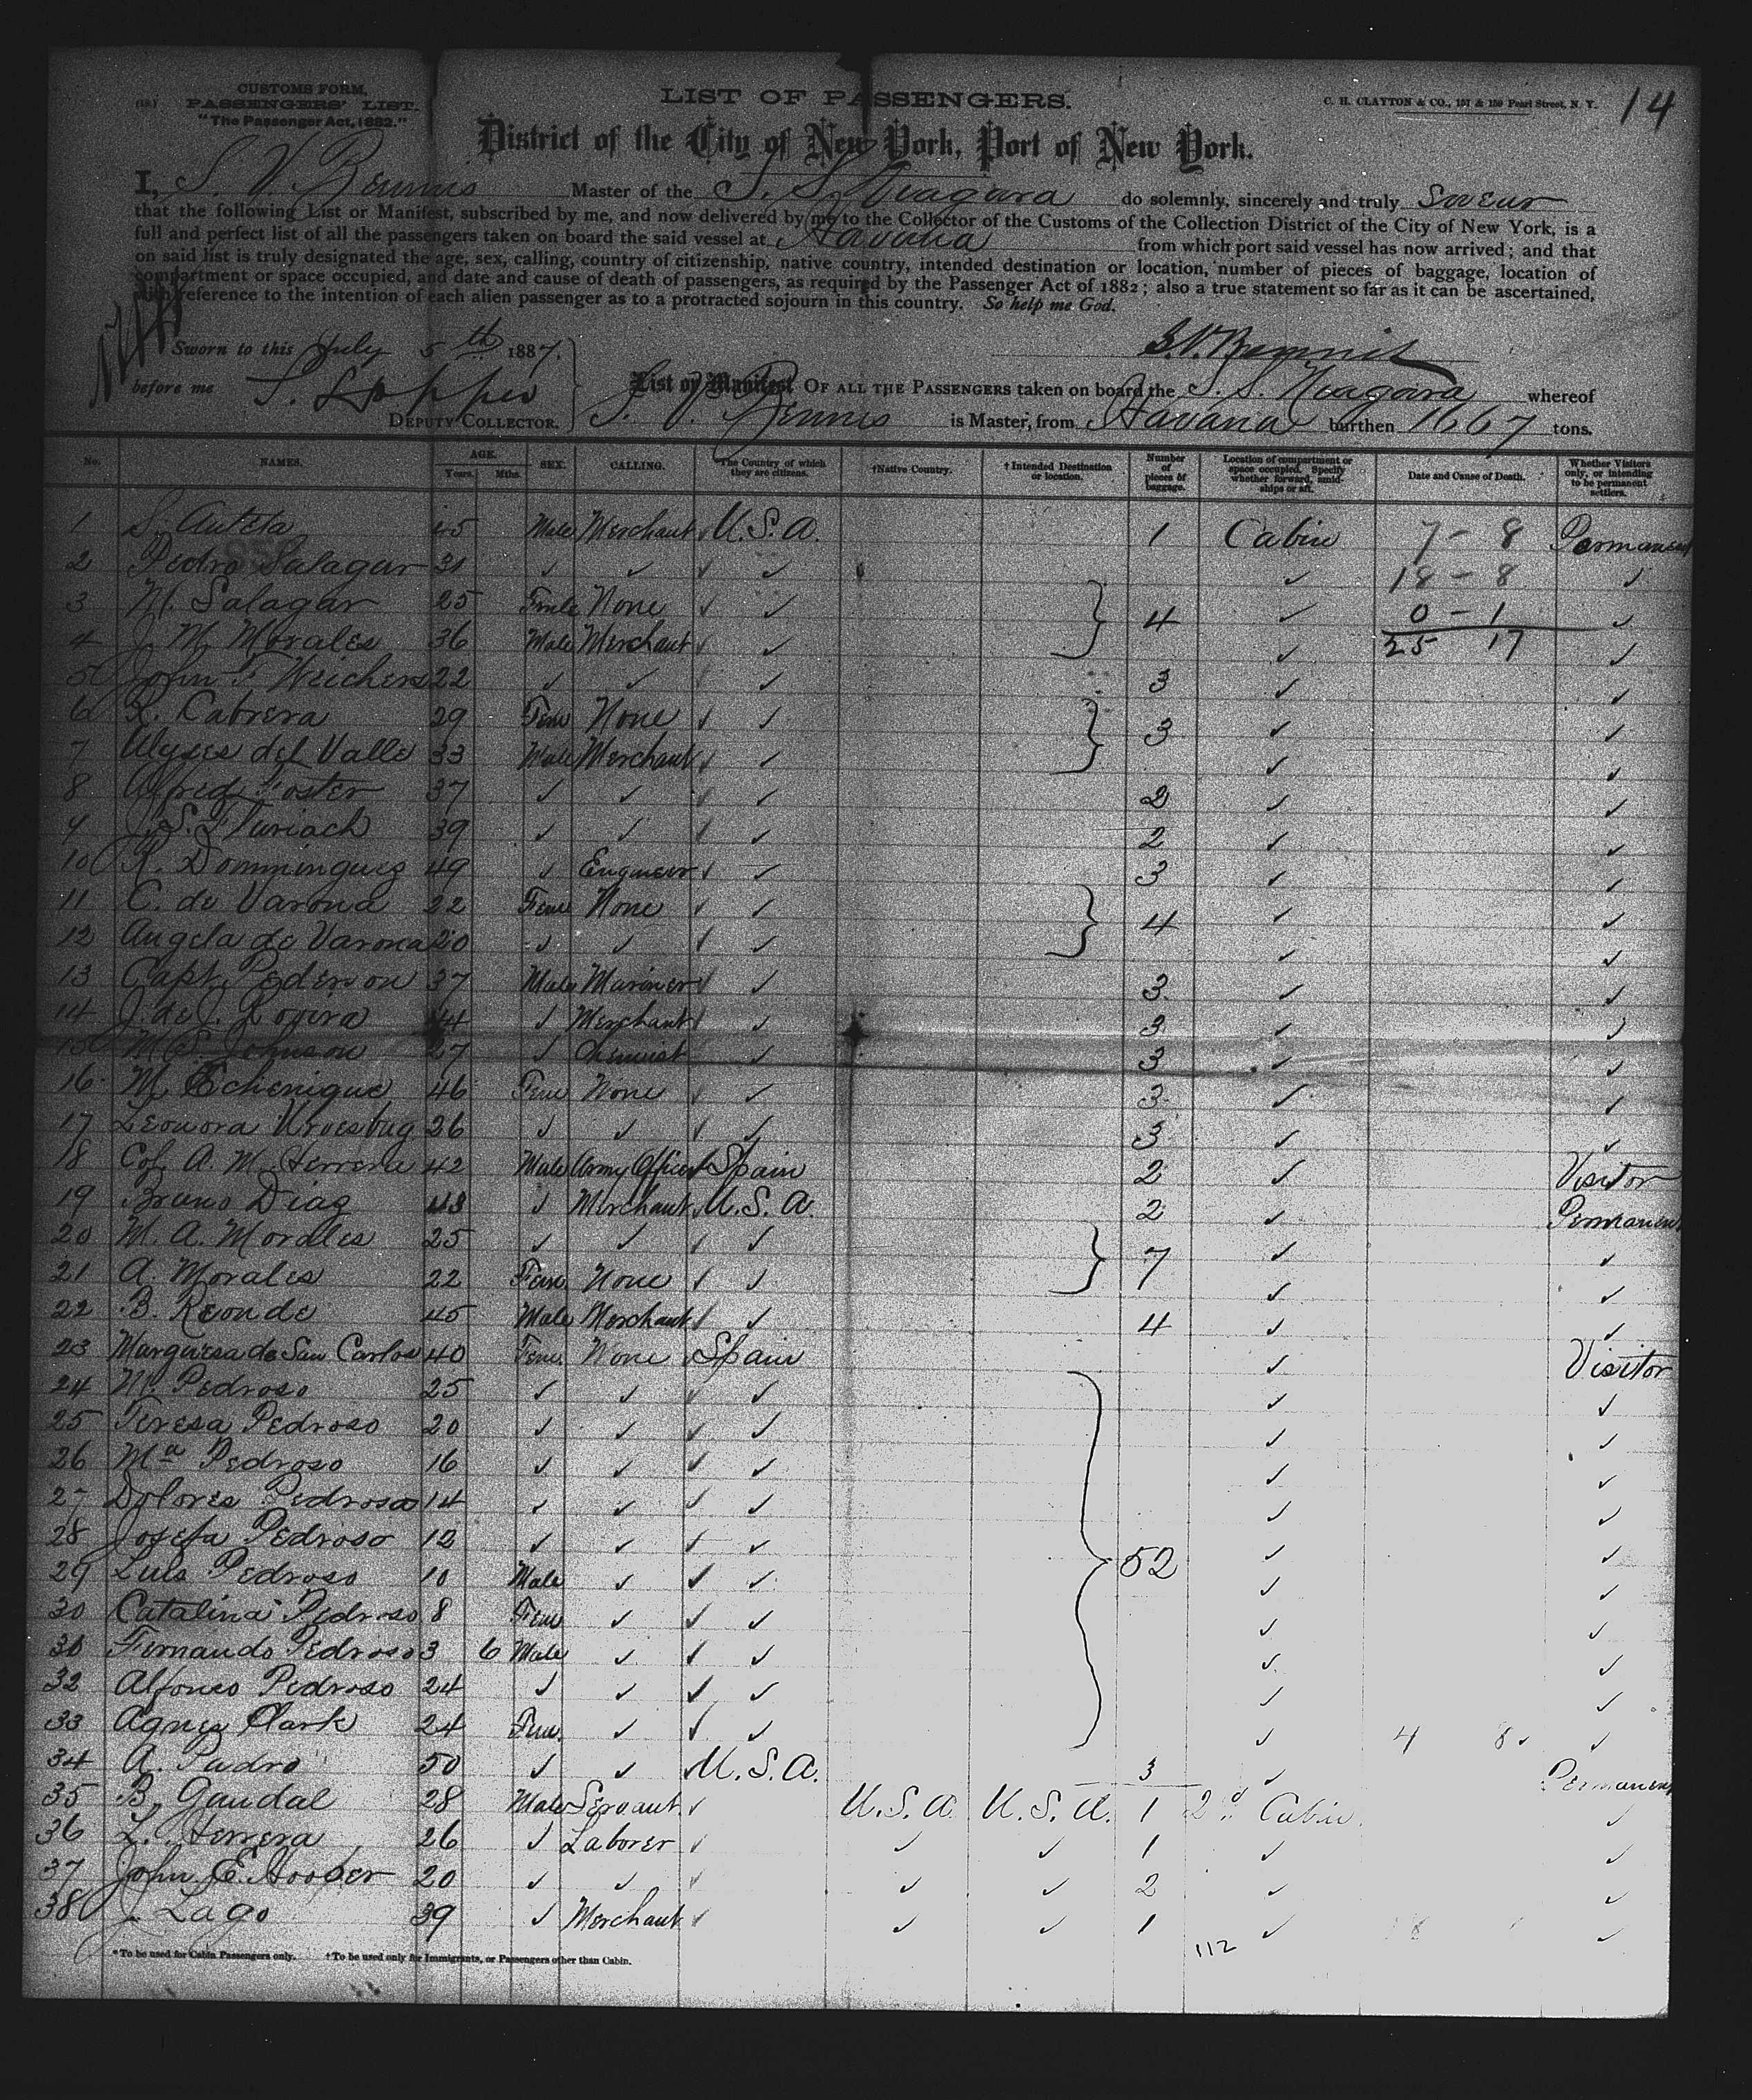 CUSTOMS FORM,
PASSENGERS' LIST.
"The Passenger Act, 1882."
LIST OF PASSENGERS.
C. H. CLAYTON & CO., 157 & 159 Pearl Street, N. Y.
14
District of the City of New York, Port of New York.
I, S. V. Bennis Master of the S. S. Niagara do solemnly, sincerely and truly swear
that the following List or Manifest, subscribed by me, and now delivered by me to the Collector of the Customs of the Collection District of the City of New York, is a
full and perfect list of all the passengers taken on board the said vessel at Havana from which port said vessel has now arrived; and that
on said list is truly designated the age, sex, calling, country of citizenship, native country, intended destination or location, number of pieces of baggage, location of
compartment or space occupied, and date and cause of death of passengers, as required by the Passenger Act of 1882; also a true statement so far as it can be ascertained,
with reference to the intention of each alien passenger as to a protracted sojourn in this country. So help me God.
Sworn to this July 5th 1887.
before me
DEPUTY COLLECTOR.
List or Manifest OF ALL THE PASSENGERS taken on board the S. S. Niagara whereof
S. V. Bennis is Master, from Havana burthen 1667 tons.
No. NAMES. AGE. Years. Mths. SEX. CALLING. *The Country of which they are citizens. †Native Country. †Intended Destination or location. Number of pieces of baggage. Location of compartment or space occupied. Specify whether forward, amidships or aft. Date and Cause of Death. Whether Visitors only, or intending to be permanent settlers.
1 S. 45 Male Merchant ✓ U.S.A. 1 Cabin 7 - 8 Permanent
2 Pedro Salagar 31 ✓ ✓ ✓ ✓ ✓ 18 - 8 ✓
3 M. Salagar 25 Fmle None ✓ ✓ } 4 ✓ 0 - 1 ✓
4 J. M. Morales 36 Male Merchant ✓ ✓ ✓ 25 17 ✓
5 John F Weichers 22 ✓ ✓ ✓ ✓ 3 ✓ ✓
6 R. Cabrera 29 Fem None ✓ ✓ } 3 ✓ ✓
7 Ulyses del Valle 33 Male Merchant ✓ ✓ ✓ ✓
8 Alfred Foster 37 ✓ ✓ ✓ ✓ 2 ✓ ✓
9 J. S. Fluriach 39 ✓ ✓ ✓ ✓ 2 ✓ ✓
10 R. Domminguez 49 ✓ Engineer ✓ ✓ 3 ✓ ✓
11 C. de Varona 22 Fem None ✓ ✓ } 4 ✓ ✓
12 Angela de Varona 20 ✓ ✓ ✓ ✓ ✓ ✓
13 Capt. Pederson 37 Male Mariner ✓ ✓ 3 ✓ ✓
14 J. de J. Rovira 44 ✓ Merchant ✓ ✓ 3 ✓ ✓
15 Johnson 27 ✓ Chemist ✓ 3 ✓ ✓
16 M. Echenique 46 Fem None ✓ ✓ 3 ✓ ✓
17 Leonora 26 ✓ ✓ ✓ ✓ 3 ✓ ✓
18 Col. A. M. Herrera 42 Male Army Officer ✓ Spain 2 ✓ Visitor
19 Bruno Diaz 48 ✓ Merchant ✓ U.S.A. 2 ✓ Permanent
20 M. A. Morales 25 ✓ ✓ ✓ ✓ } 7 ✓ ✓
21 A. Morales 22 Fem None ✓ ✓ ✓ ✓
22 B. Reonde 45 Male Merchant ✓ ✓ 4 ✓ ✓
23 Marquesa de San Carlos 40 Fem. None ✓ Spain ✓ Visitor
24 N. Pedroso 25 ✓ ✓ ✓ ✓ ✓ ✓
25 Teresa Pedroso 20 ✓ ✓ ✓ ✓ ✓ ✓
26 Ma Pedroso 16 ✓ ✓ ✓ ✓ ✓ ✓
27 Dolores Pedrosa 14 ✓ ✓ ✓ ✓ ✓ ✓
28 Josefa Pedroso 12 ✓ ✓ ✓ ✓ } 52 ✓ ✓
29 Luis Pedroso 10 Male ✓ ✓ ✓ ✓ ✓
30 Catalina Pedroso 8 Fem ✓ ✓ ✓ ✓ ✓
31 Fernando Pedroso 3 6 Male ✓ ✓ ✓ ✓ ✓
32 Alfonso Pedroso 24 ✓ ✓ ✓ ✓ ✓ ✓
33 Agnes Clark 24 Fem. ✓ ✓ ✓ ✓ 4 8 ✓
34 A. Padro 50 ✓ ✓ U.S.A. 3 ✓ Permanent
35 B. Gandal 28 Male Servant ✓ U.S.A. U.S.A. 1 2d Cabin ✓
36 L. Herrera 26 ✓ Laborer ✓ ✓ ✓ 1 ✓ ✓
37 John E. Hooper 20 ✓ ✓ ✓ ✓ ✓ 2 ✓ ✓
38 J. Lago 39 ✓ Merchant ✓ ✓ ✓ 1 ✓ ✓
112
*To be used for Cabin Passengers only. †To be used only for Immigrants, or Passengers other than Cabin.